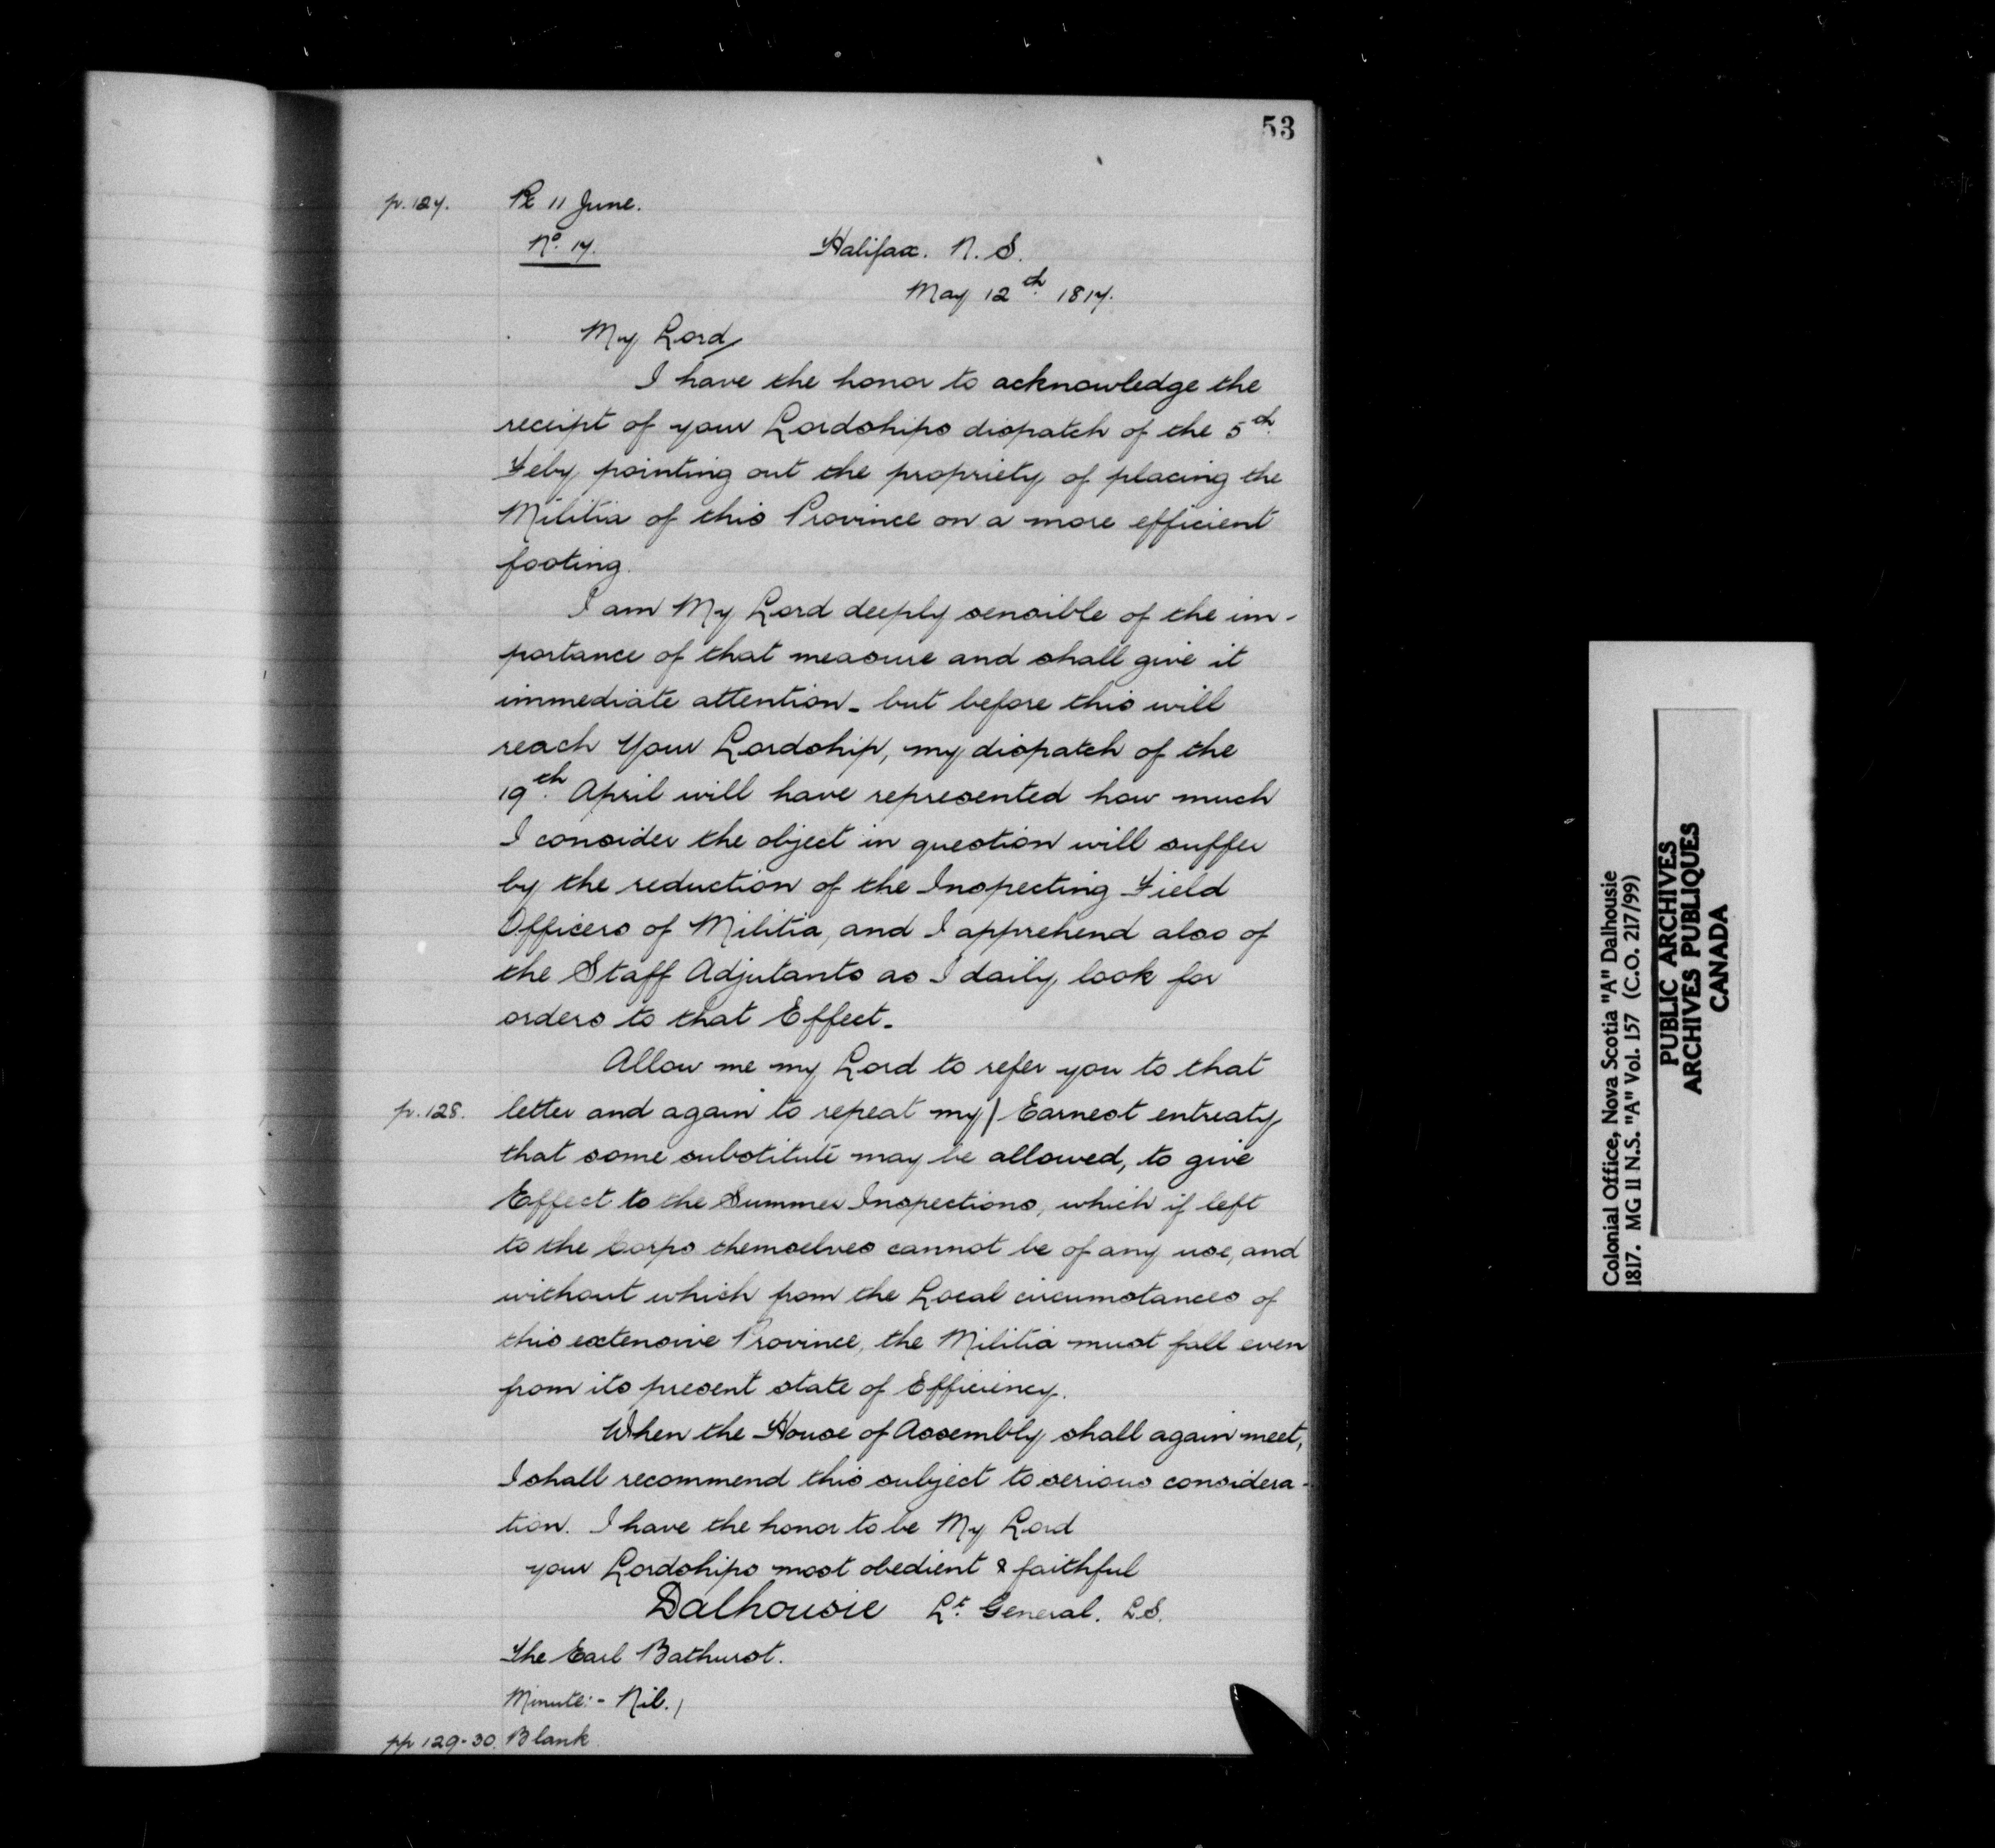 53
p. 127. Rc 11 June.
No. 17. Halifax. N. S.
May 12th. 1817.
My Lord,
I have the honor to acknowledge the
receipt of your Lordships dispatch of the 5th.
Feby pointing out the propriety of placing the
Militia of this Province on a more efficient
footing.
I am My Lord deeply sensible of the im-
portance of that measure and shall give it
immediate attention - but before this will
reach Your Lordship, my dispatch of the
19th. April will have represented how much
I consider the object in question will suffer
by the reduction of the Inspecting Field
Officers of Militia, and I apprehend also of
the Staff Adjutants as I daily look for
orders to that Effect.
Allow me my Lord to refer you to that
p. 128. letter and again to repeat my / Earnest entreaty
that some substitute may be allowed, to give
Effect to the Summer Inspections, which if left
to the Corps themselves cannot be of any use, and
without which from the Local circumstances of
this extensive Province, the Militia must fall even
from its present state of Efficiency.
When the House of Assembly shall again meet,
I shall recommend this subject to serious considera-
tion. I have the honor to be My Lord
your Lordships most obedient & faithful
Dalhousie Lt. General. L.S.
The Earl Bathurst.
Minute:- Nil. /
pp 129-30. Blank
Colonial Office, Nova Scotia "A" Dalhousie
1817. MG 11 N.S. "A" Vol. 157 (C.O. 217/99)
PUBLIC ARCHIVES
ARCHIVES PUBLIQUES
CANADA